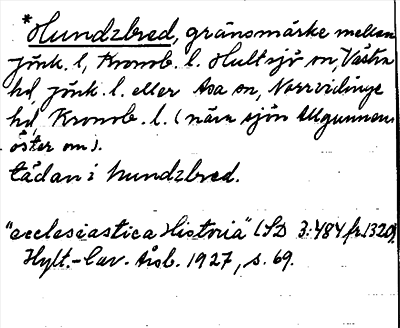 *Hundzbred, gränsmärke mellan
Jönk. l, Kronob. l. Hultsjö sn, Västra
hd, Jönk. l. eller Asa sn, Norrvidinge
hd, Kronob. l. (nära sjön Allgunnen
öster om).
tädan i hundzbred.
"ecclesiastica Historia" (SD 3:484 fr. 1320).
Hylt.-Cav. Årsb. 1927, s. 69.